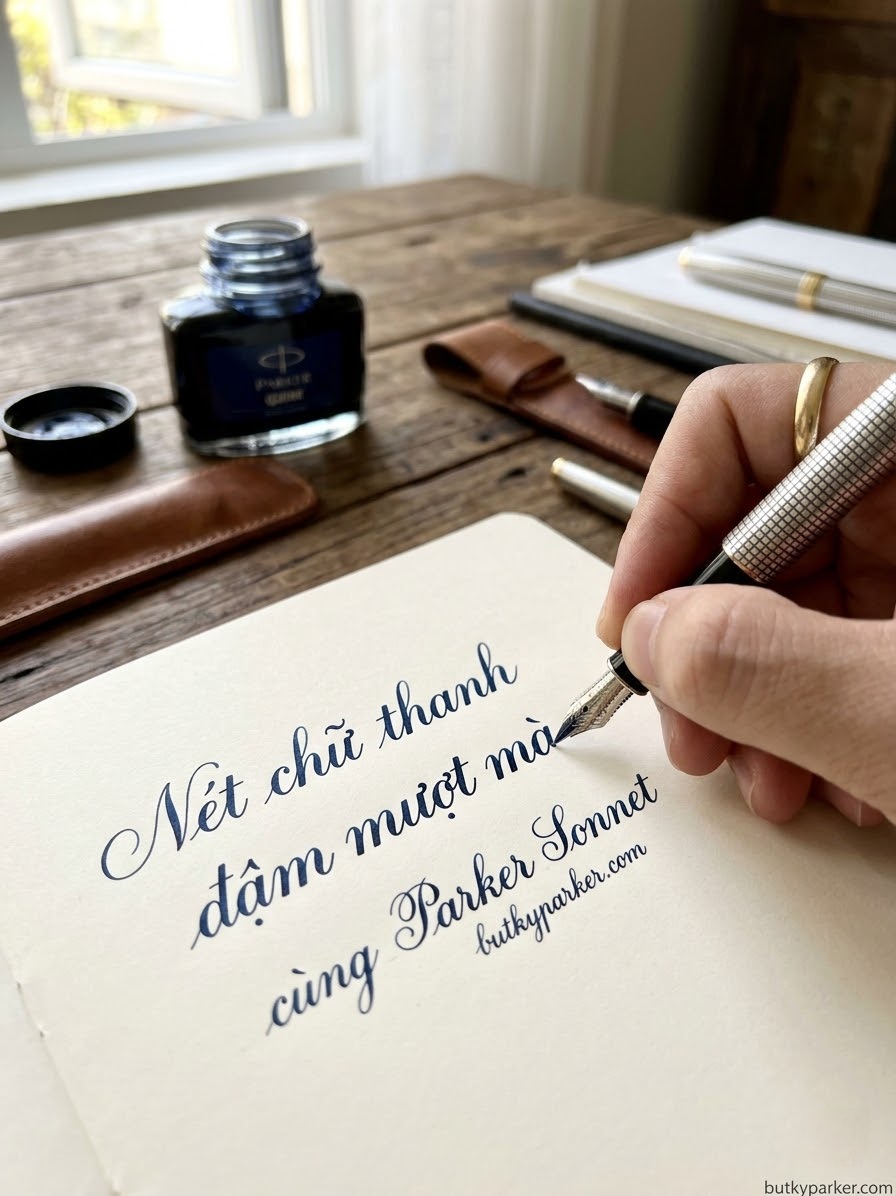 PARKER
QUINK
Nét chữ thanh
đậm mượt mà
cùng Parker Sonnet
butkyparker.com
butkyparker.com